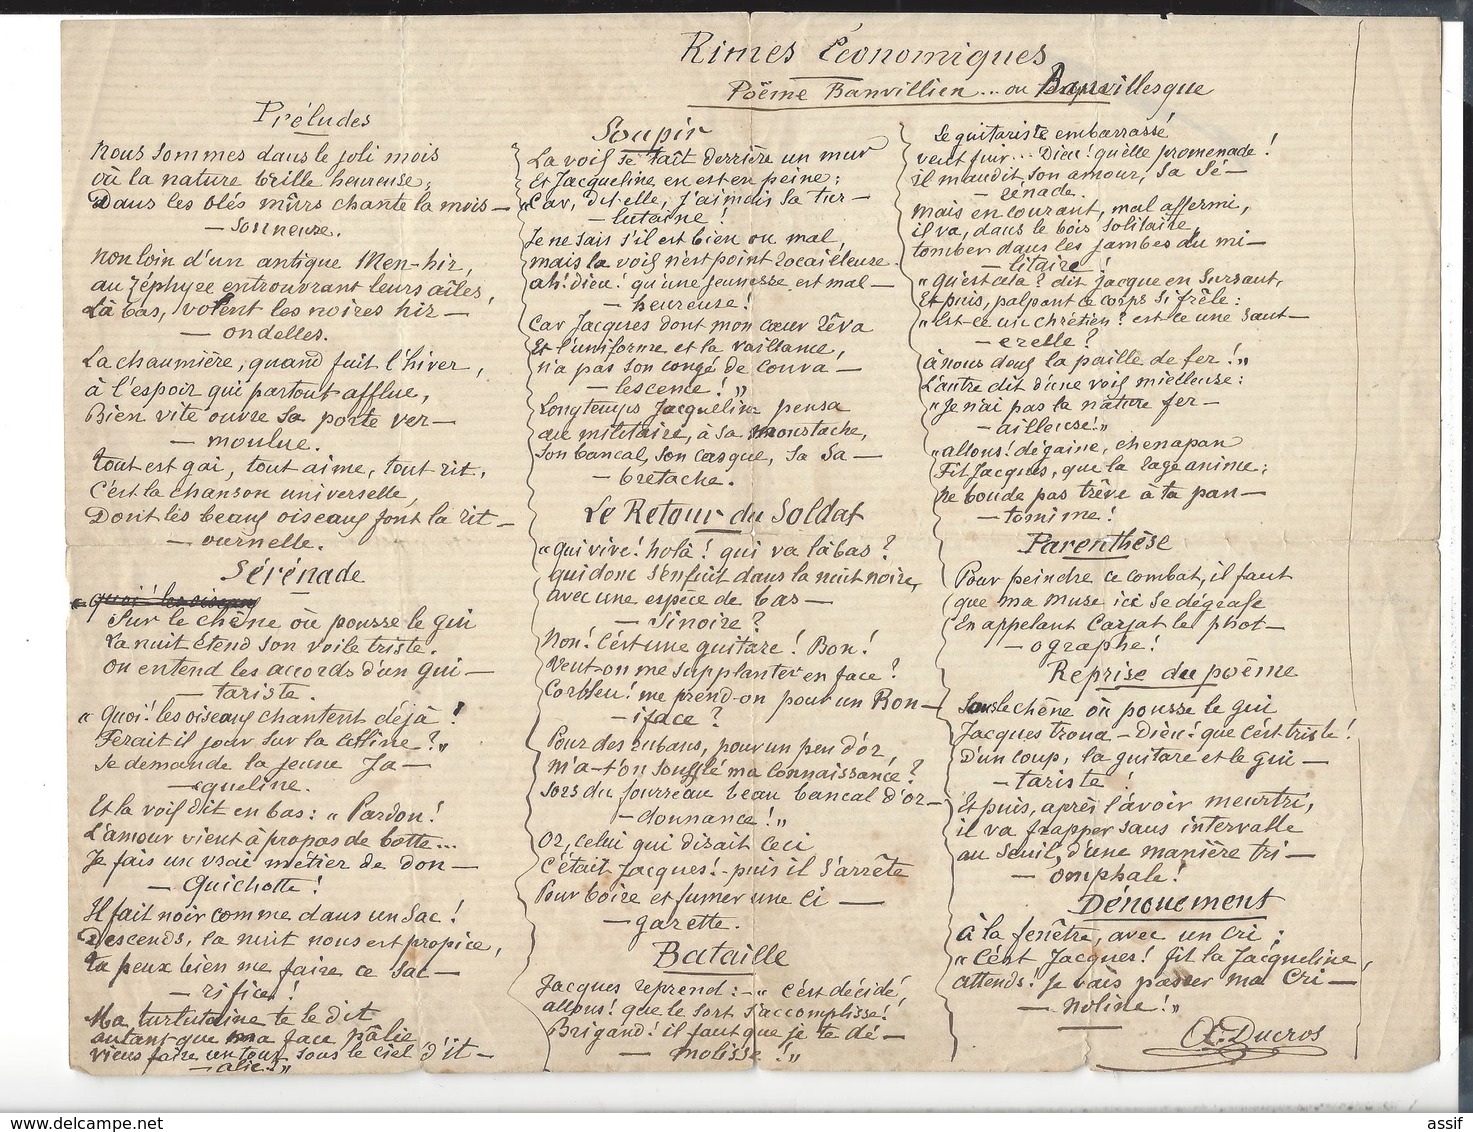 Rimes Économiques
Poëme Banvillien... ou Banvillesque
Préludes
Nous sommes dans le joli mois
où la nature brille heureuse;
Dans les blés mûrs chante la mois—
— sonneuse.
Non loin d'un antique Men-hir,
au Zéphyre entrouvrant leurs aîles,
Là bas, volent les noires hir—
— ondelles.
La chaumière, quand fuit l'hiver,
à l'espoir qui partout afflue,
Bien vite ouvre sa porte ver—
— moulue.
Tout est gai, tout aime, tout rit,
C'est la chanson universelle,
Dont les beaux oiseaux font la rit—
— ournelle.
Sérénade
« quoi! les oiseaux
Sur le chêne où pousse le gui
La nuit étend son voile triste.
on entend les accords d'un gui—
— tariste.
« Quoi! les oiseaux chantent déjà!
Ferait il jour sur la colline? »
se demande la jeune Ja—
— queline.
Et la voix dit en bas: « Pardon!
L'amour vient à propos de botte...
Je fais un vrai métier de don—
— Quichotte!
Il fait noir comme dans un sac!
Descends, la nuit nous est propice,
tu peux bien me faire ce sac—
— rifice!
Ma turlutaine te le dit
autant que ma face pâlie
viens faire un tour sous le ciel d'it—
— alie. »
Soupir
La voix se taît derrière un mur
Et Jacqueline en est en peine;
« Car, dit-elle, j'aimais sa tur—
— lutaine!
Je ne sais s'il est bien ou mal,
mais la voix n'est point rocailleuse.
ah! dieu! qu'une jeunesse est mal—
— heureuse!
Car Jacques dont mon cœur rêva
Et l'uniforme et la vaillance,
n'a pas son congé de conva—
— lescence! »
Longtemps Jacqueline pensa
au militaire, à sa moustache,
son bancal, son casque, sa sa—
— bretache.
Le Retour du Soldat
« qui vive! holà! qui va là bas?
qui donc s'enfuit dans la nuit noire,
avec une espèce de bas—
— sinoire?
Non! C'est une guitare! Bon!
Veut-on me supplanter en face?
Corbleu! me prend-on pour un Bon—
— iface?
Pour des rubans, pour un peu d'or,
M'a-t'on soufflé ma connaissance?
sors du fourreau beau bancal d'or—
— donnance! »
Or, celui qui disait ceci
C'était Jacques! - puis il s'arrête
Pour boire et fumer une ci—
— garette.
Bataille
Jacques reprend: - « C'est décidé,
allons! que le sort s'accomplisse!
Brigand! il faut que je te dé—
— molisse! »
Le guitariste embarrassé
veut fuir... Dieu! quelle promenade!
il maudit son amour, sa sé—
— rénade.
Mais en courant, mal affermi,
il va, dans le bois solitaire,
tomber dans les jambes du mi—
— litaire!
« Qu'est cela? dit Jacque en sursaut,
Et puis, palpant ce corps si frêle:
« Est-ce un chrétien? est ce une saut—
— erelle?
à nous deux la paille de fer! »
L'autre dit d'une voix mielleuse:
« Je n'ai pas la nature fer—
— ailleuse! »
« allons! dégaine, chenapan
Fit Jacques, que la rage anime;
ne boude pas trêve à ta pan—
— tomime!
Parenthèse
Pour peindre ce combat, il faut
que ma muse ici se dégrafe
En appelant Carjat le phot—
— ographe!
Reprise du poëme
Sous le chêne où pousse le gui
Jacques troua - Dieu! que c'est triste!
D'un coup, la guitare et le gui—
— tariste!
Et puis, après l'avoir meurtri,
il va frapper sans intervalle
au seuil, d'une manière tri—
— omphale!
Dénouement
à la fenêtre, avec un cri;
« C'est Jacques! fit la Jacqueline,
attends! Je vais passer ma Cri—
— noline! »
Ducros
delcampe.net
assif